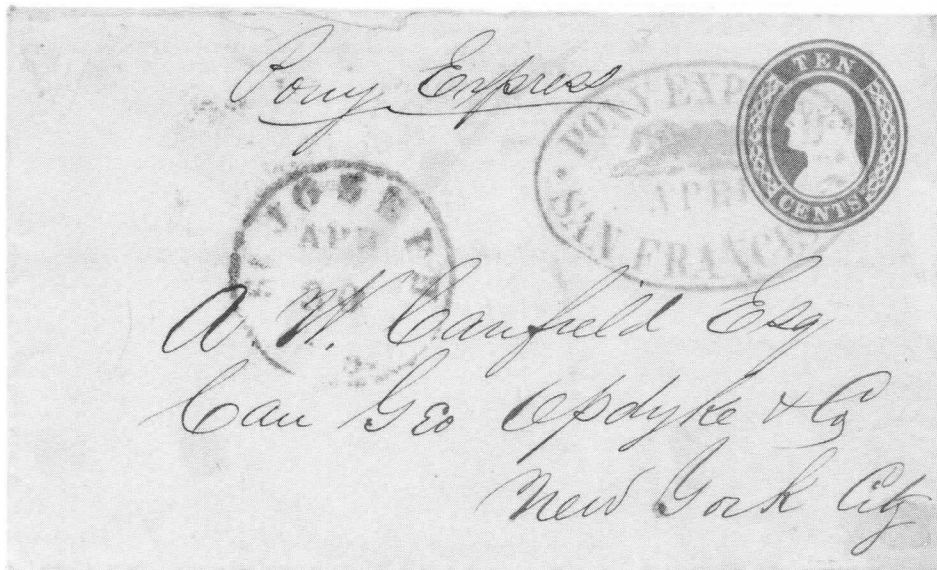 Pony Express
PONY EXP
APRI
SAN FRANCIS
TEN
CENTS
JOSEPH
APR
20
A. W. Canfield Esq
Care Geo Opdyke & Co
New York City